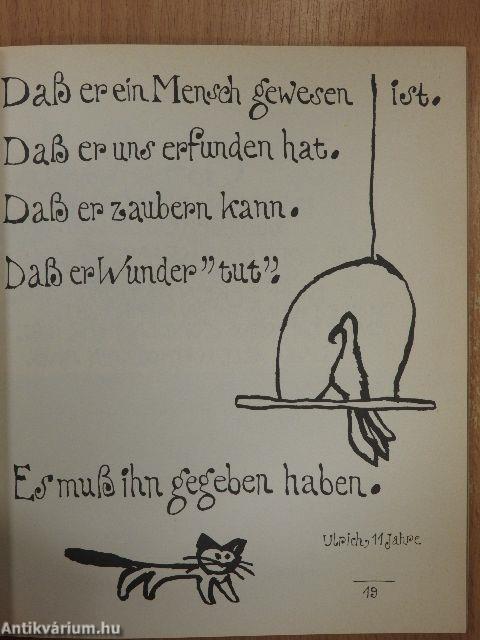 Daß er ein Mensch gewesen ist.
Daß er uns erfunden hat.
Daß er zaubern kann.
Daß er Wunder "tut".
Es muß ihn gegeben haben.
Ulrich, 11 Jahre
19
Antikvárium.hu